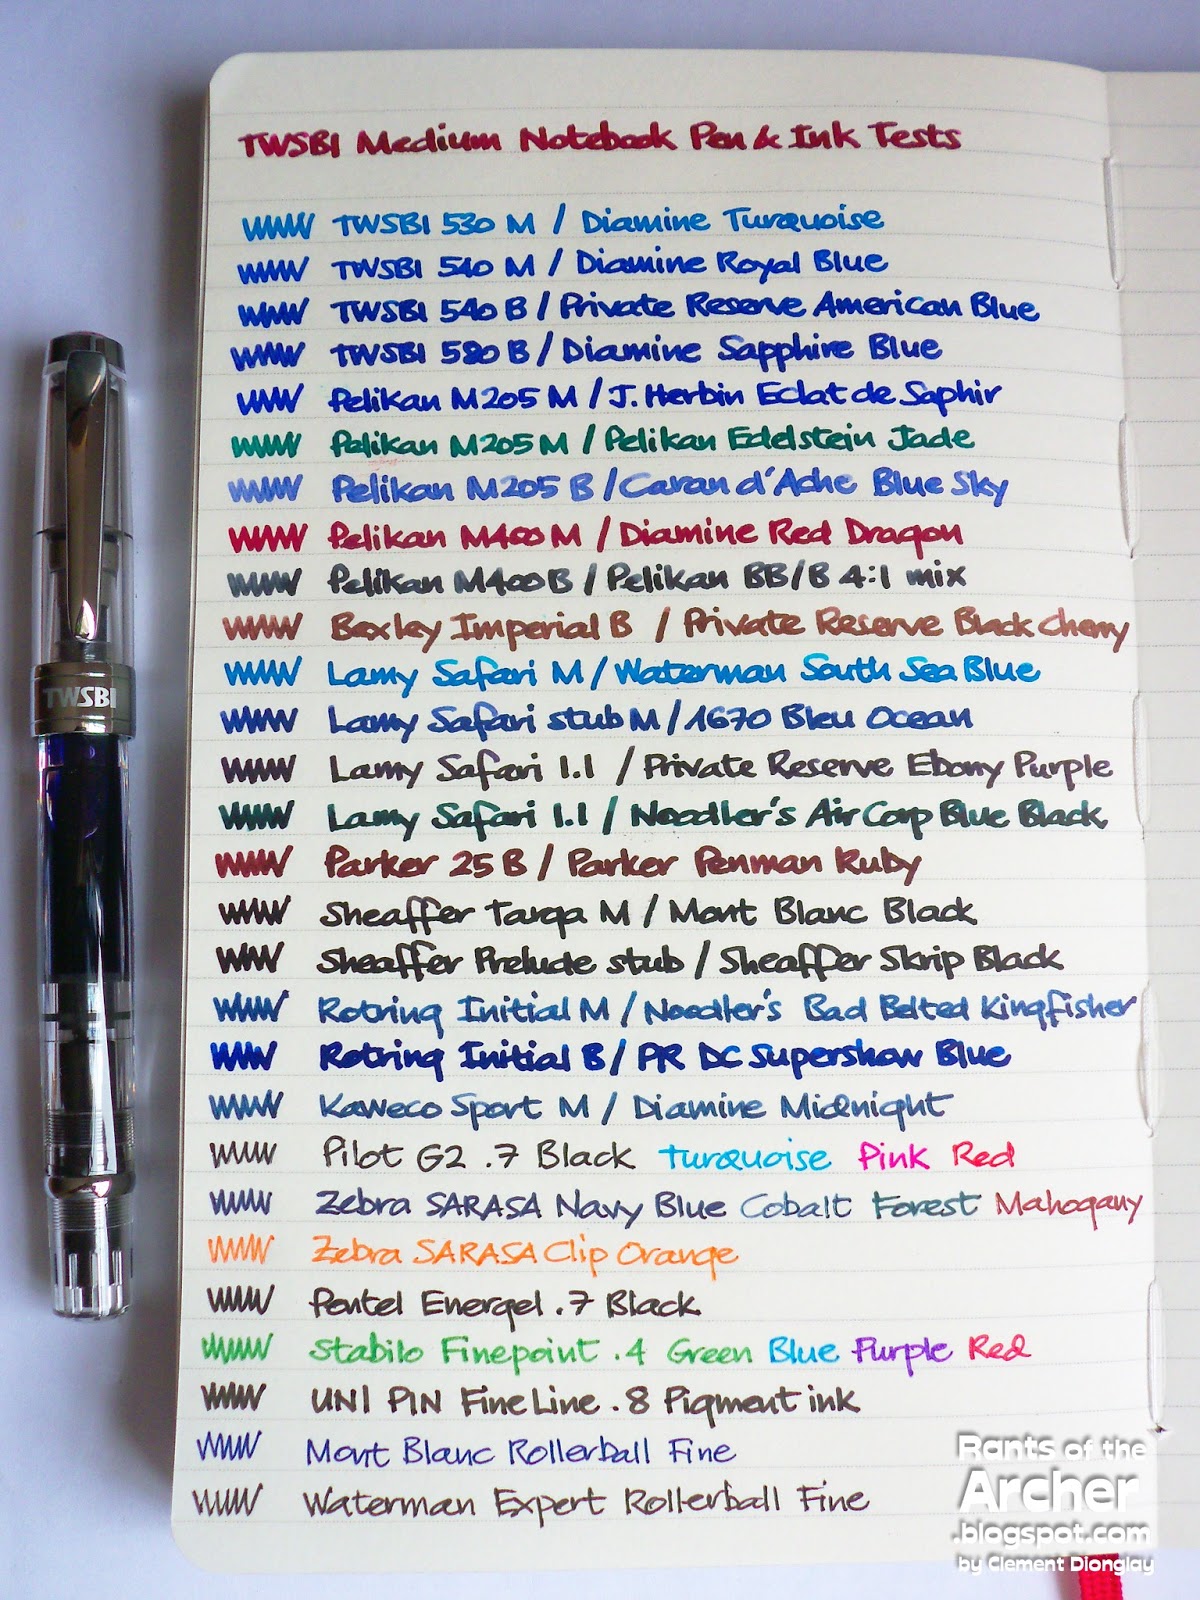 TWSBI Medium Notebook Pen & Ink Tests
TWSBI 530 M / Diamine Turquoise
TWSBI 540 M / Diamine Royal Blue
TWSBI 540 B / Private Reserve American Blue
TWSBI 580 B / Diamine Sapphire Blue
Pelikan M205 M / J. Herbin Eclat de Saphir
Pelikan M205 M / Pelikan Edelstein Jade
Pelikan M205 B / Caran d'Ache Blue Sky
Pelikan M400 M / Diamine Red Dragon
Pelikan M400 B / Pelikan BB/B 4:1 mix
Bexley Imperial B / Private Reserve Black Cherry
Lamy Safari M / Waterman South Sea Blue
Lamy Safari stub M / 1670 Bleu Ocean
Lamy Safari 1.1 / Private Reserve Ebony Purple
Lamy Safari 1.1 / Noodler's Air Corp Blue Black
Parker 25 B / Parker Penman Ruby
Sheaffer Targa M / Mont Blanc Black
Sheaffer Prelude stub / Sheaffer Skrip Black
Rotring Initial M / Noodler's Bad Belted Kingfisher
Rotring Initial B / PR DC Supershow Blue
Kaweco Sport M / Diamine Midnight
Pilot G2 .7 Black Turquoise Pink Red
Zebra SARASA Navy Blue Cobalt Forest Mahogany
Zebra SARASA Clip Orange
Pentel Energel .7 Black
Stabilo Finepoint .4 Green Blue Purple Red
UNI PIN Fine Line .8 Pigment ink
Mont Blanc Rollerball Fine
Waterman Expert Rollerball Fine
TWSBI
Rants of the
Archer
.blogspot.com
by Clement Dionglay